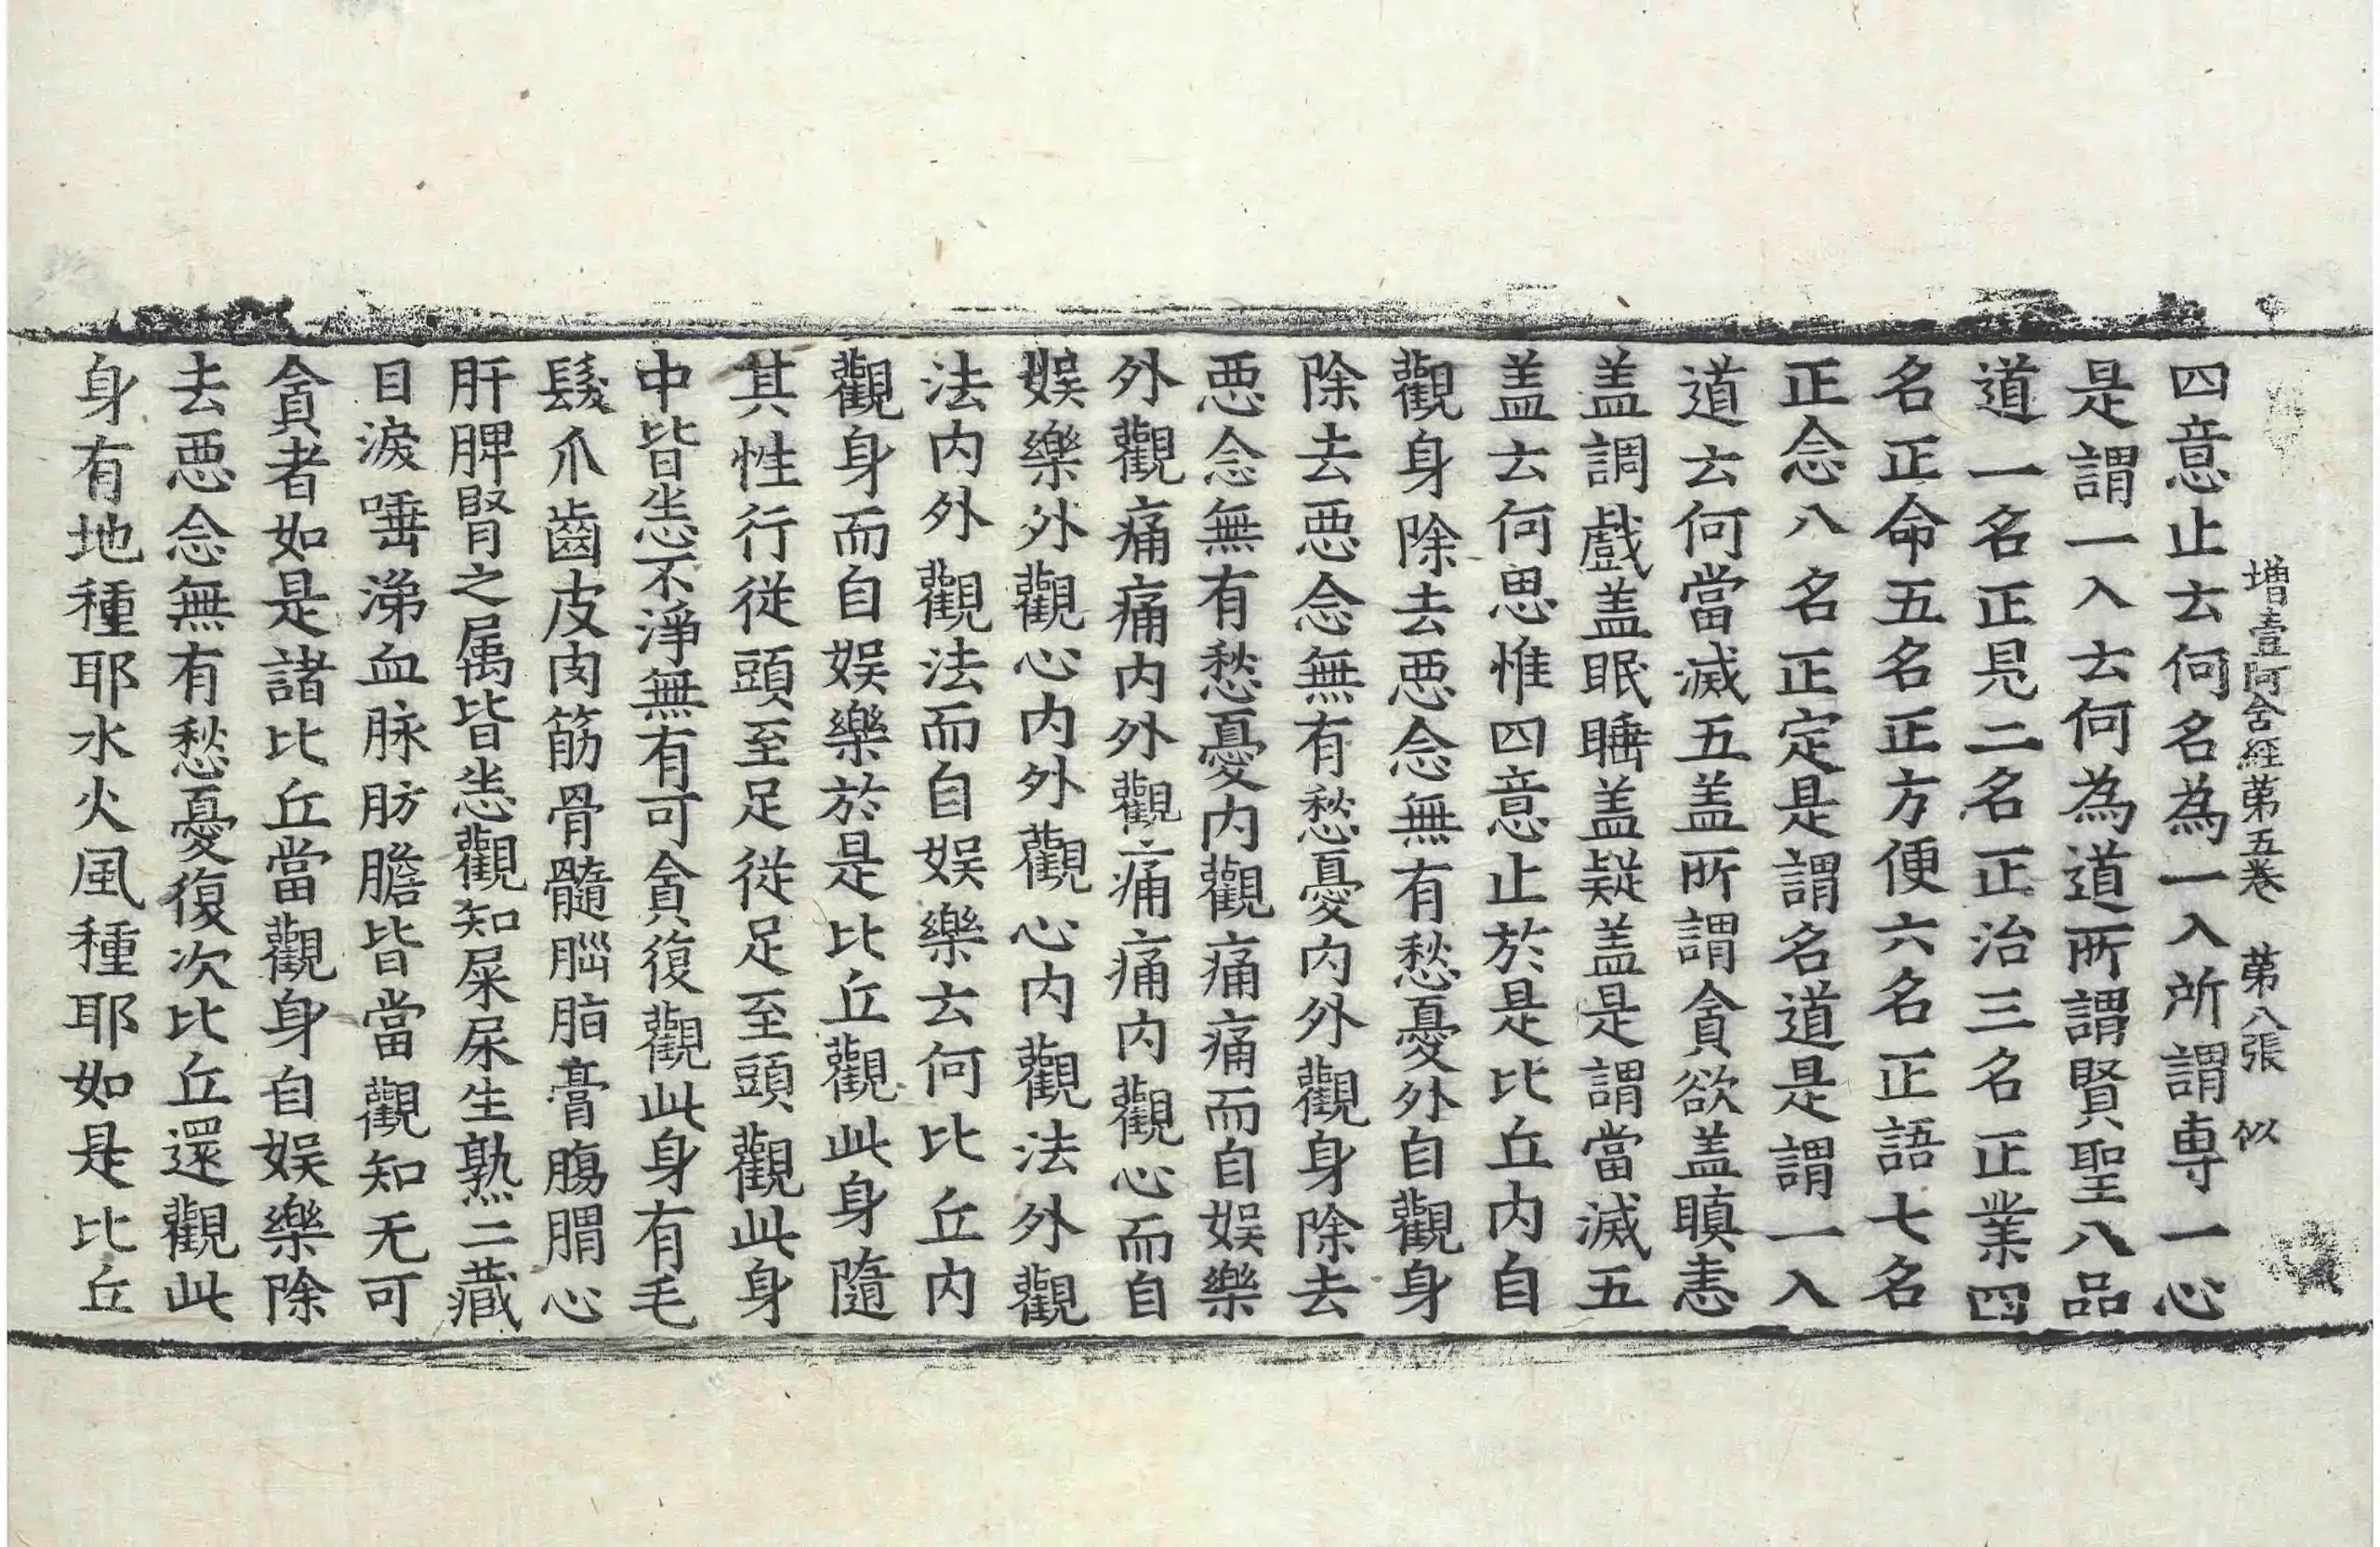 增壹阿含經苐五卷 苐八張 似
四意止云何名為一入所謂專一心
是謂一入云何為道所謂賢聖八品
道一名正見二名正治三名正業四
名正命五名正方便六名正語七名
正念八名正定是謂名道是謂一入
道云何當滅五盖所謂貪欲盖瞋恚
盖調戲盖眠睡盖疑盖是謂當滅五
盖云何思惟四意止於是比丘内自
觀身除去惡念無有愁憂外自觀身
除去惡念無有愁憂内外觀身除去
惡念無有愁憂内觀痛痛而自娛樂
外觀痛痛内外觀痛痛内觀心而自
娛樂外觀心内外觀心内觀法外觀
法内外觀法而自娛樂云何比丘内
觀身而自娛樂於是比丘觀此身隨
其性行從頭至足從足至頭觀此身
中皆悉不淨無有可貪復觀此身有毛
髮爪齒皮肉筋骨髓腦脂膏膓胃心
肝脾腎之属皆悉觀知屎尿生熟二藏
目淚唾涕血脉肪膽皆當觀知无可
貪者如是諸比丘當觀身自娛樂除
去惡念無有愁憂復次比丘還觀此
身有地種耶水火風種耶如是比丘